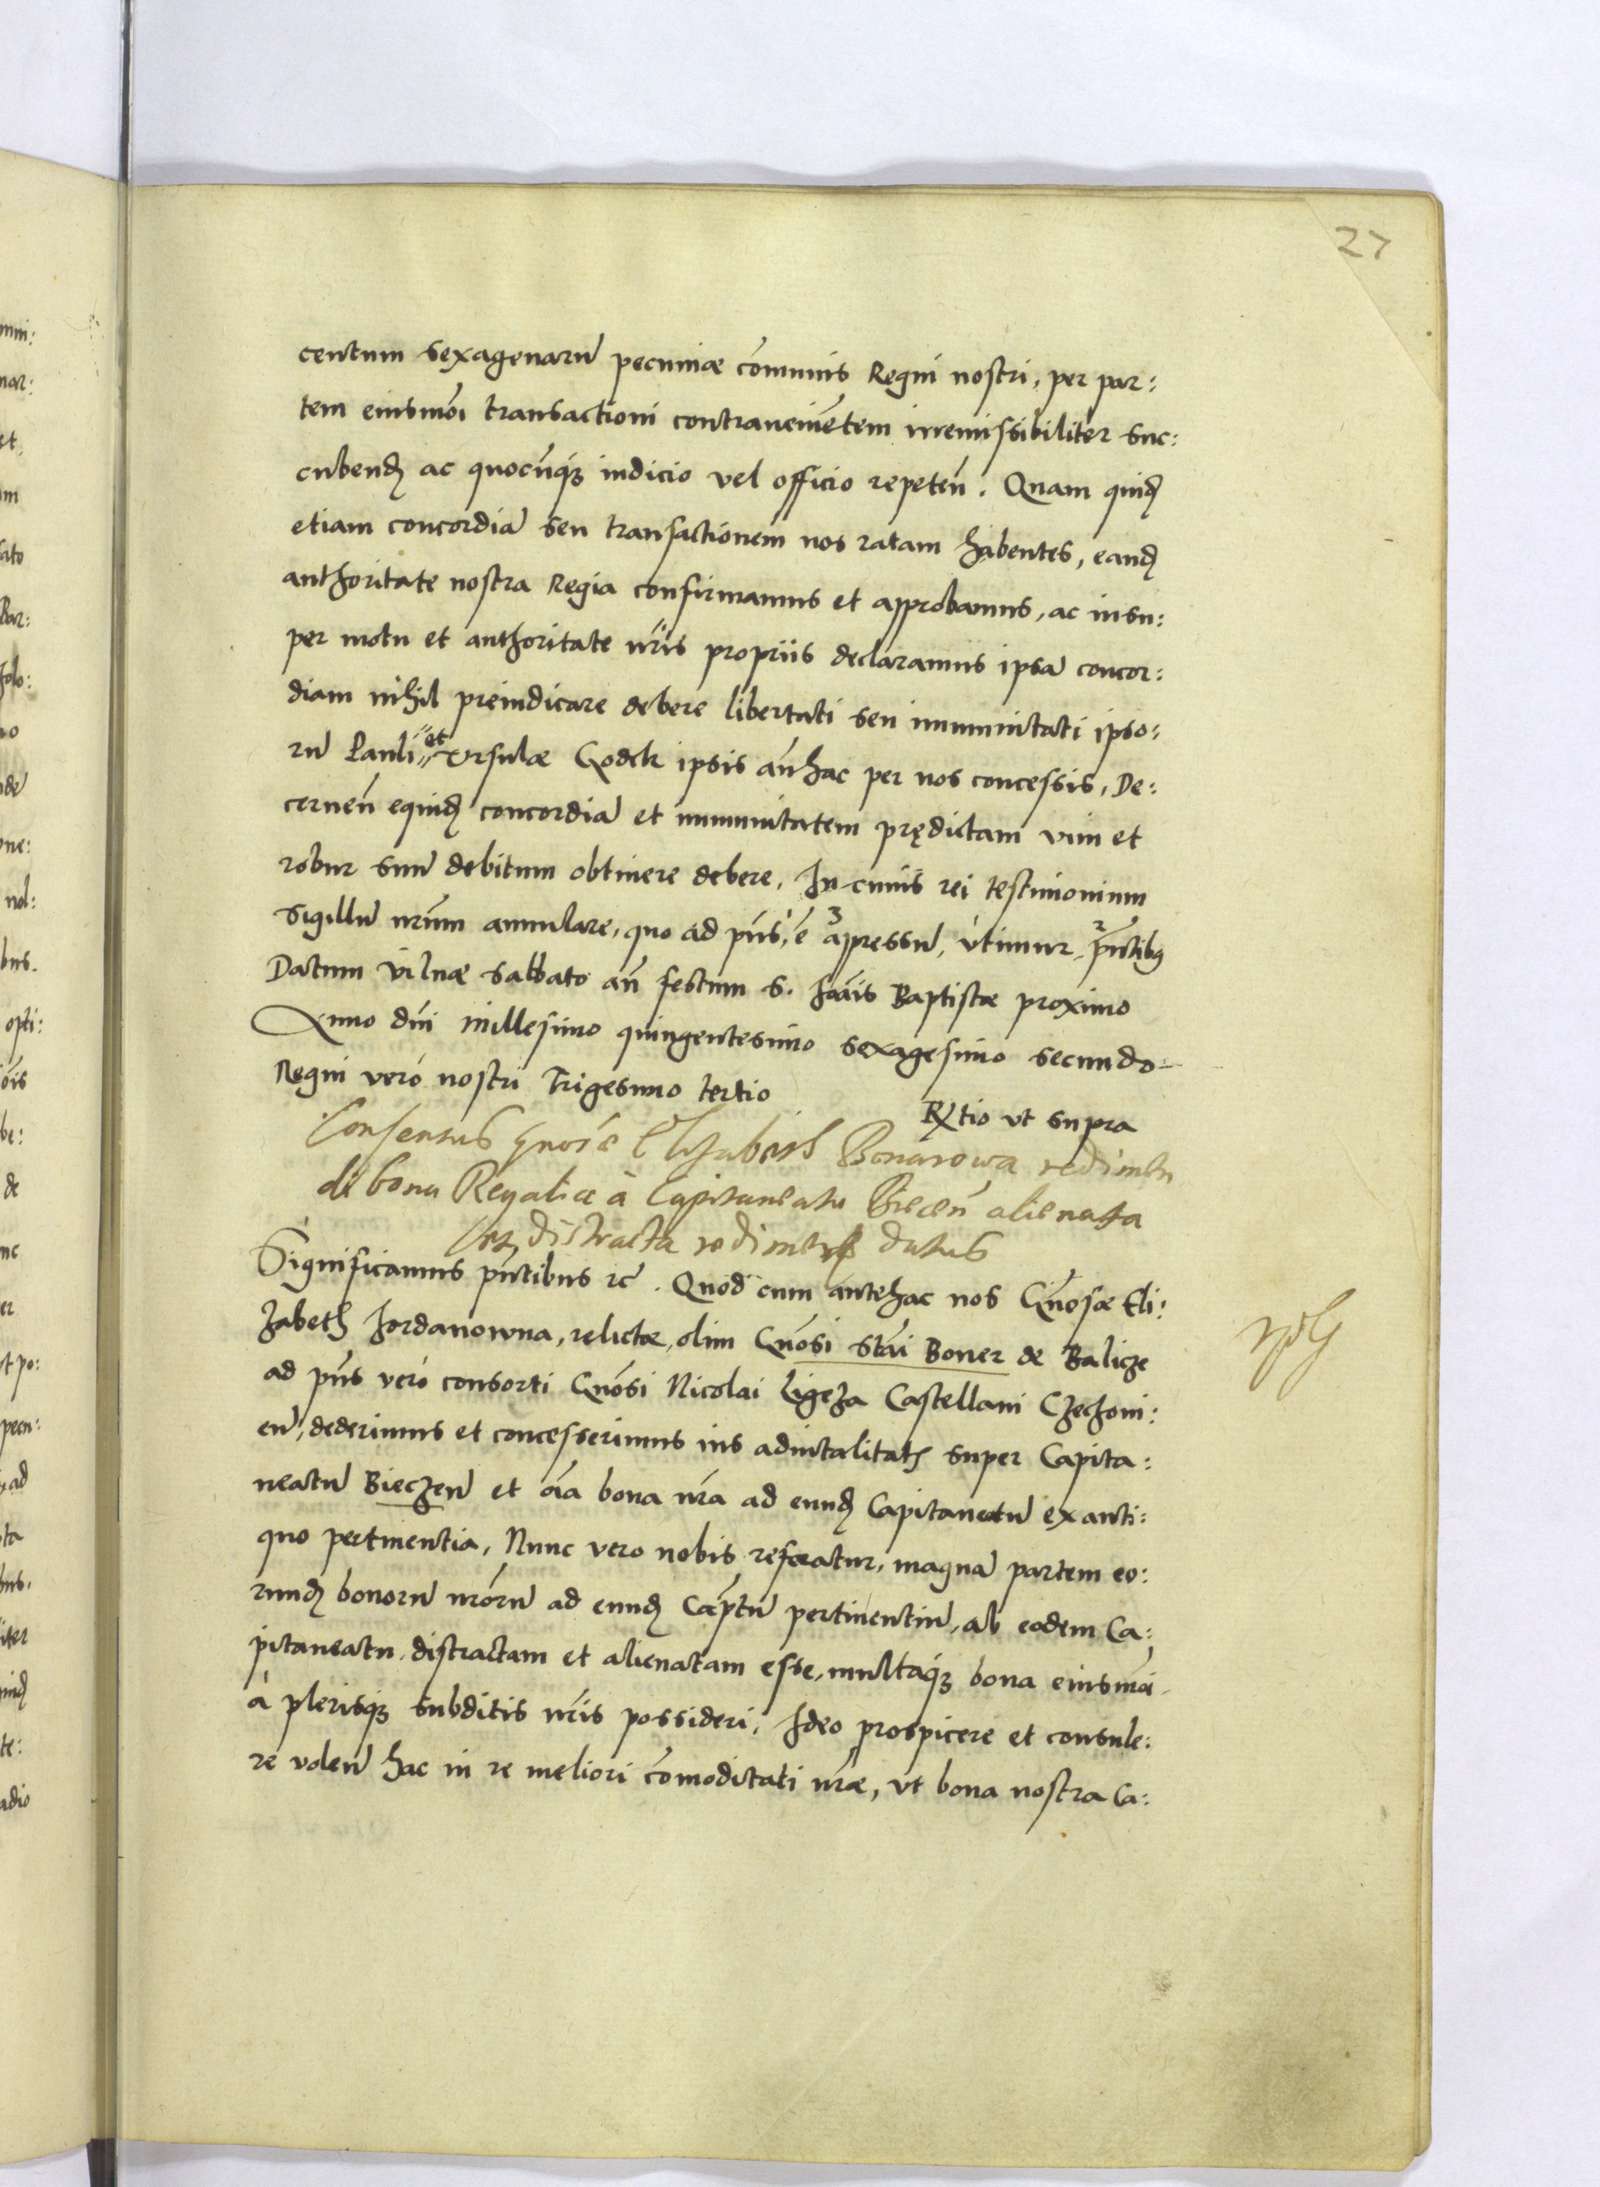 27
centum sexagenarũ pecuniæ cõmunis Regni nostri, per par:
tem eiusmõi transactioni contravenieñtem irremissibiliter suc:
cubendꝫ ac quocũqꝫ iudicio vel officio repeteñ. Quam quidꝫ
etiam concordiã seu transactionem nos ratam habentes, eandꝫ
authoritate nostra Regia confirmamus et approbamus, ac insu:
per motu et authoritate nr̃is propriis declaramus ipsã concor:
diam nihil preiudicare debere libertati seu immunitati ipso:
rũ Pauli et Vrsulæ Godek ipsis añhac per nos concessis, De:
cerneñ equidꝫ concordiã et immunitatem prędictam vim et
robur suũ debitum obtinere debere. In cuius rei testimonium
sigillũ nr̃um annulare, quo ad pñs, 1 ẽ 3 appressũ, vtimur, 2 pñtibꝫ
Datum Vilnæ sabbato añ festum S. Joãis Baptistæ proximo
Anno dñi Millesimo quingentesimo sexagesimo secundo
Regni verò nostri Trigesimo tertio
Rx̃tio vt supra
Consensus Gnosæ Elizabeth Bonarowa redimen
di bona Regalia à Capitaneatu Biecen̄ alienata
et distracta datus
Significamus pñtibus rc̃. Quod cum antehac nos Gñosæ Eli:
zabeth Jordanowna, relictæ, olim Gñosi stãi Boner de Balicze
ad pñs verò consorti Gñosi Nicolai Ligęza Castellani Czechoni:
eñ, dederimus et concesserimus ius aduitalitatꝭ super Capita:
neatũ Bieczeñ et oĩa bona nr̃a ad eundꝫ Capitaneatũ ex anti:
quo pertinentia, Nunc vero nobis referatur, magnã partem eo:
rundꝫ bonorũ nr̃orũ ad eundꝫ Cap̃tũ pertinentiũ, ab eodem Ca:
pitaneatu, distractam et alienatam esse, multaqꝫ bona eiusmõi
à plerisqꝫ subditis nr̃is possideri, Ideo prospicere et consule:
re voleñ hac in re meliori cõmoditati nr̃æ, vt bona nostra Ca: